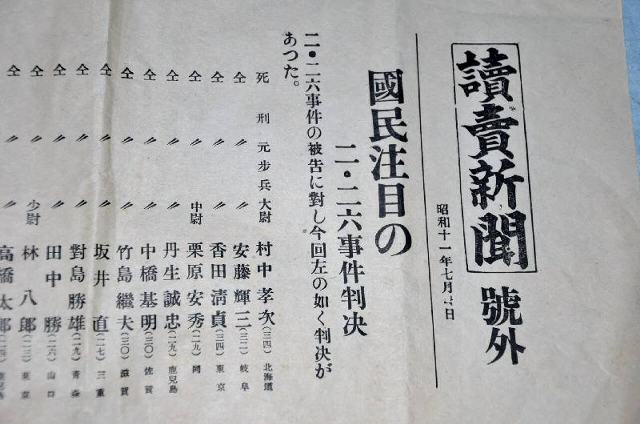 讀賣新聞 號外
昭和十一年七月七日
國民注目の
二・二六事件判決
二・二六事件の被告に對し今回左の如く判決が
あつた。
死刑 元步兵大尉 村中孝次(三四)北海道
仝 〃 〃 安藤輝三(三二)岐阜
仝 〃 〃 香田淸貞(三四)東京
仝 〃 中尉 栗原安秀(二九)同
仝 〃 〃 丹生誠忠(二九)鹿兒島
仝 〃 〃 中橋基明(三〇)佐賀
仝 〃 〃 竹島繼夫(三〇)滋賀
仝 〃 〃 坂井直(二七)三重
仝 〃 〃 對島勝雄(二九)靑森
仝 〃 〃 田中勝(二六)山口
仝 〃 少尉 林八郞(二三)東京
仝 〃 〃 高橋太郞(二四)